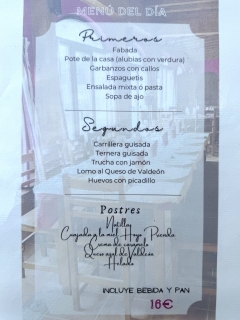 MENÚ DEL DÍA
Primeros
Fabada
Pote de la casa (alubias con verdura)
Garbanzos con callos
Espaguetis
Ensalada mixta ó pasta
Sopa de ajo
Segundos
Carrillera guisada
Ternera guisada
Trucha con jamón
Lomo al Queso de Valdeón
Huevos con picadillo
Postres
Natillas
Cuajada a la miel Hoya Pecada
Crema de
Queso azul de Valdeón
Helado
INCLUYE BEBIDA Y PAN
16€